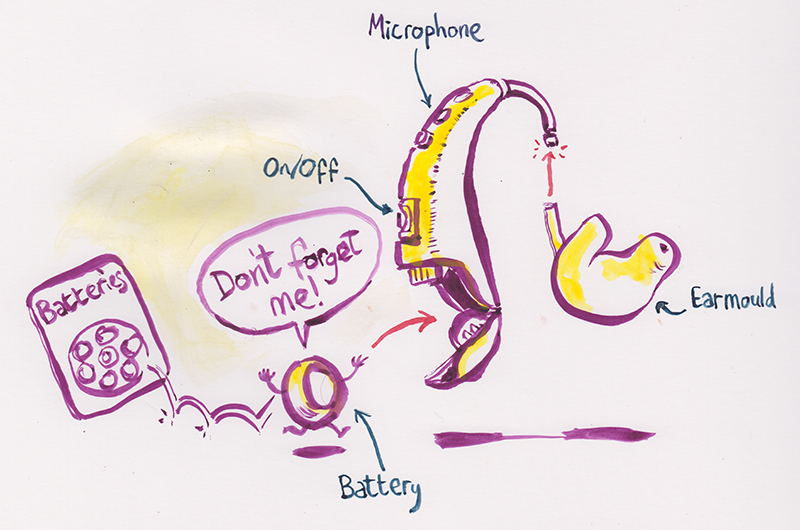 Microphone
On/Off
Don't forget
me!
Batteries
Earmould
Battery